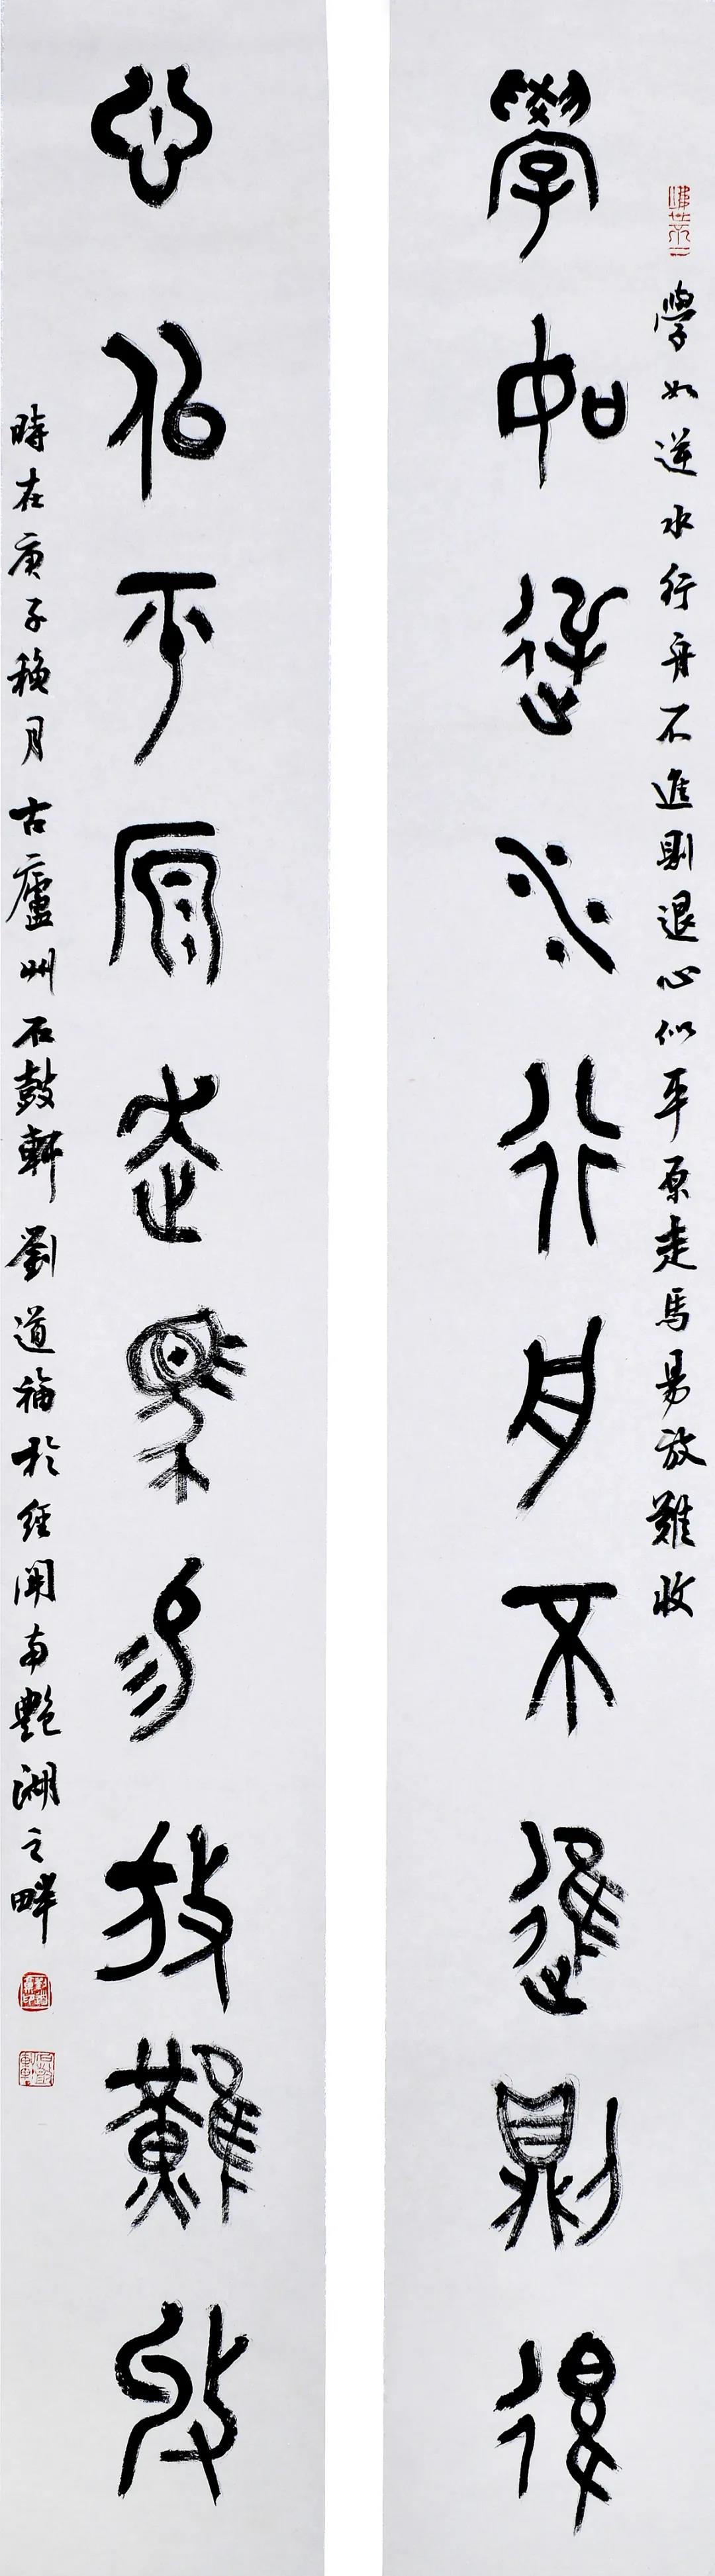 學如逆水行舟不進則退心似平原走馬易放難收
學如逆水行舟不進則退
心似平原走馬易放難收
時在庚子龝月古廬州石鼓軒劉道福於經開南艷湖之畔